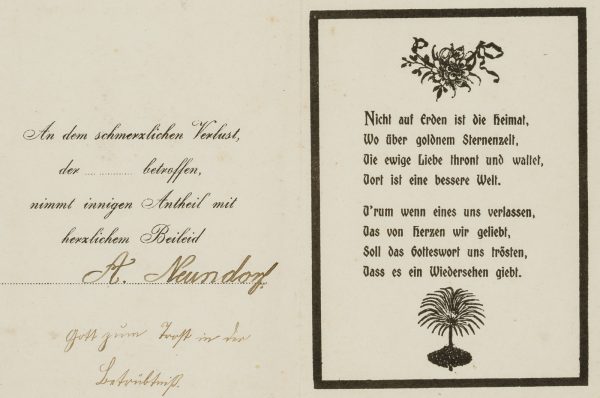 An dem schmerzlichen Verlust,
der ............ betroffen,
nimmt innigen Antheil mit
herzlichem Beileid
A. Neundorf.
Gott zum Trost in der
Betrübtniß.
Nicht auf Erden ist die Heimat,
Wo über goldnem Sternenzelt,
Die ewige Liebe thront und waltet,
Dort ist eine bessere Welt.
D'rum wenn eines uns verlassen,
Das von Herzen wir geliebt,
Soll das Gotteswort uns trösten,
Dass es ein Wiedersehen giebt.